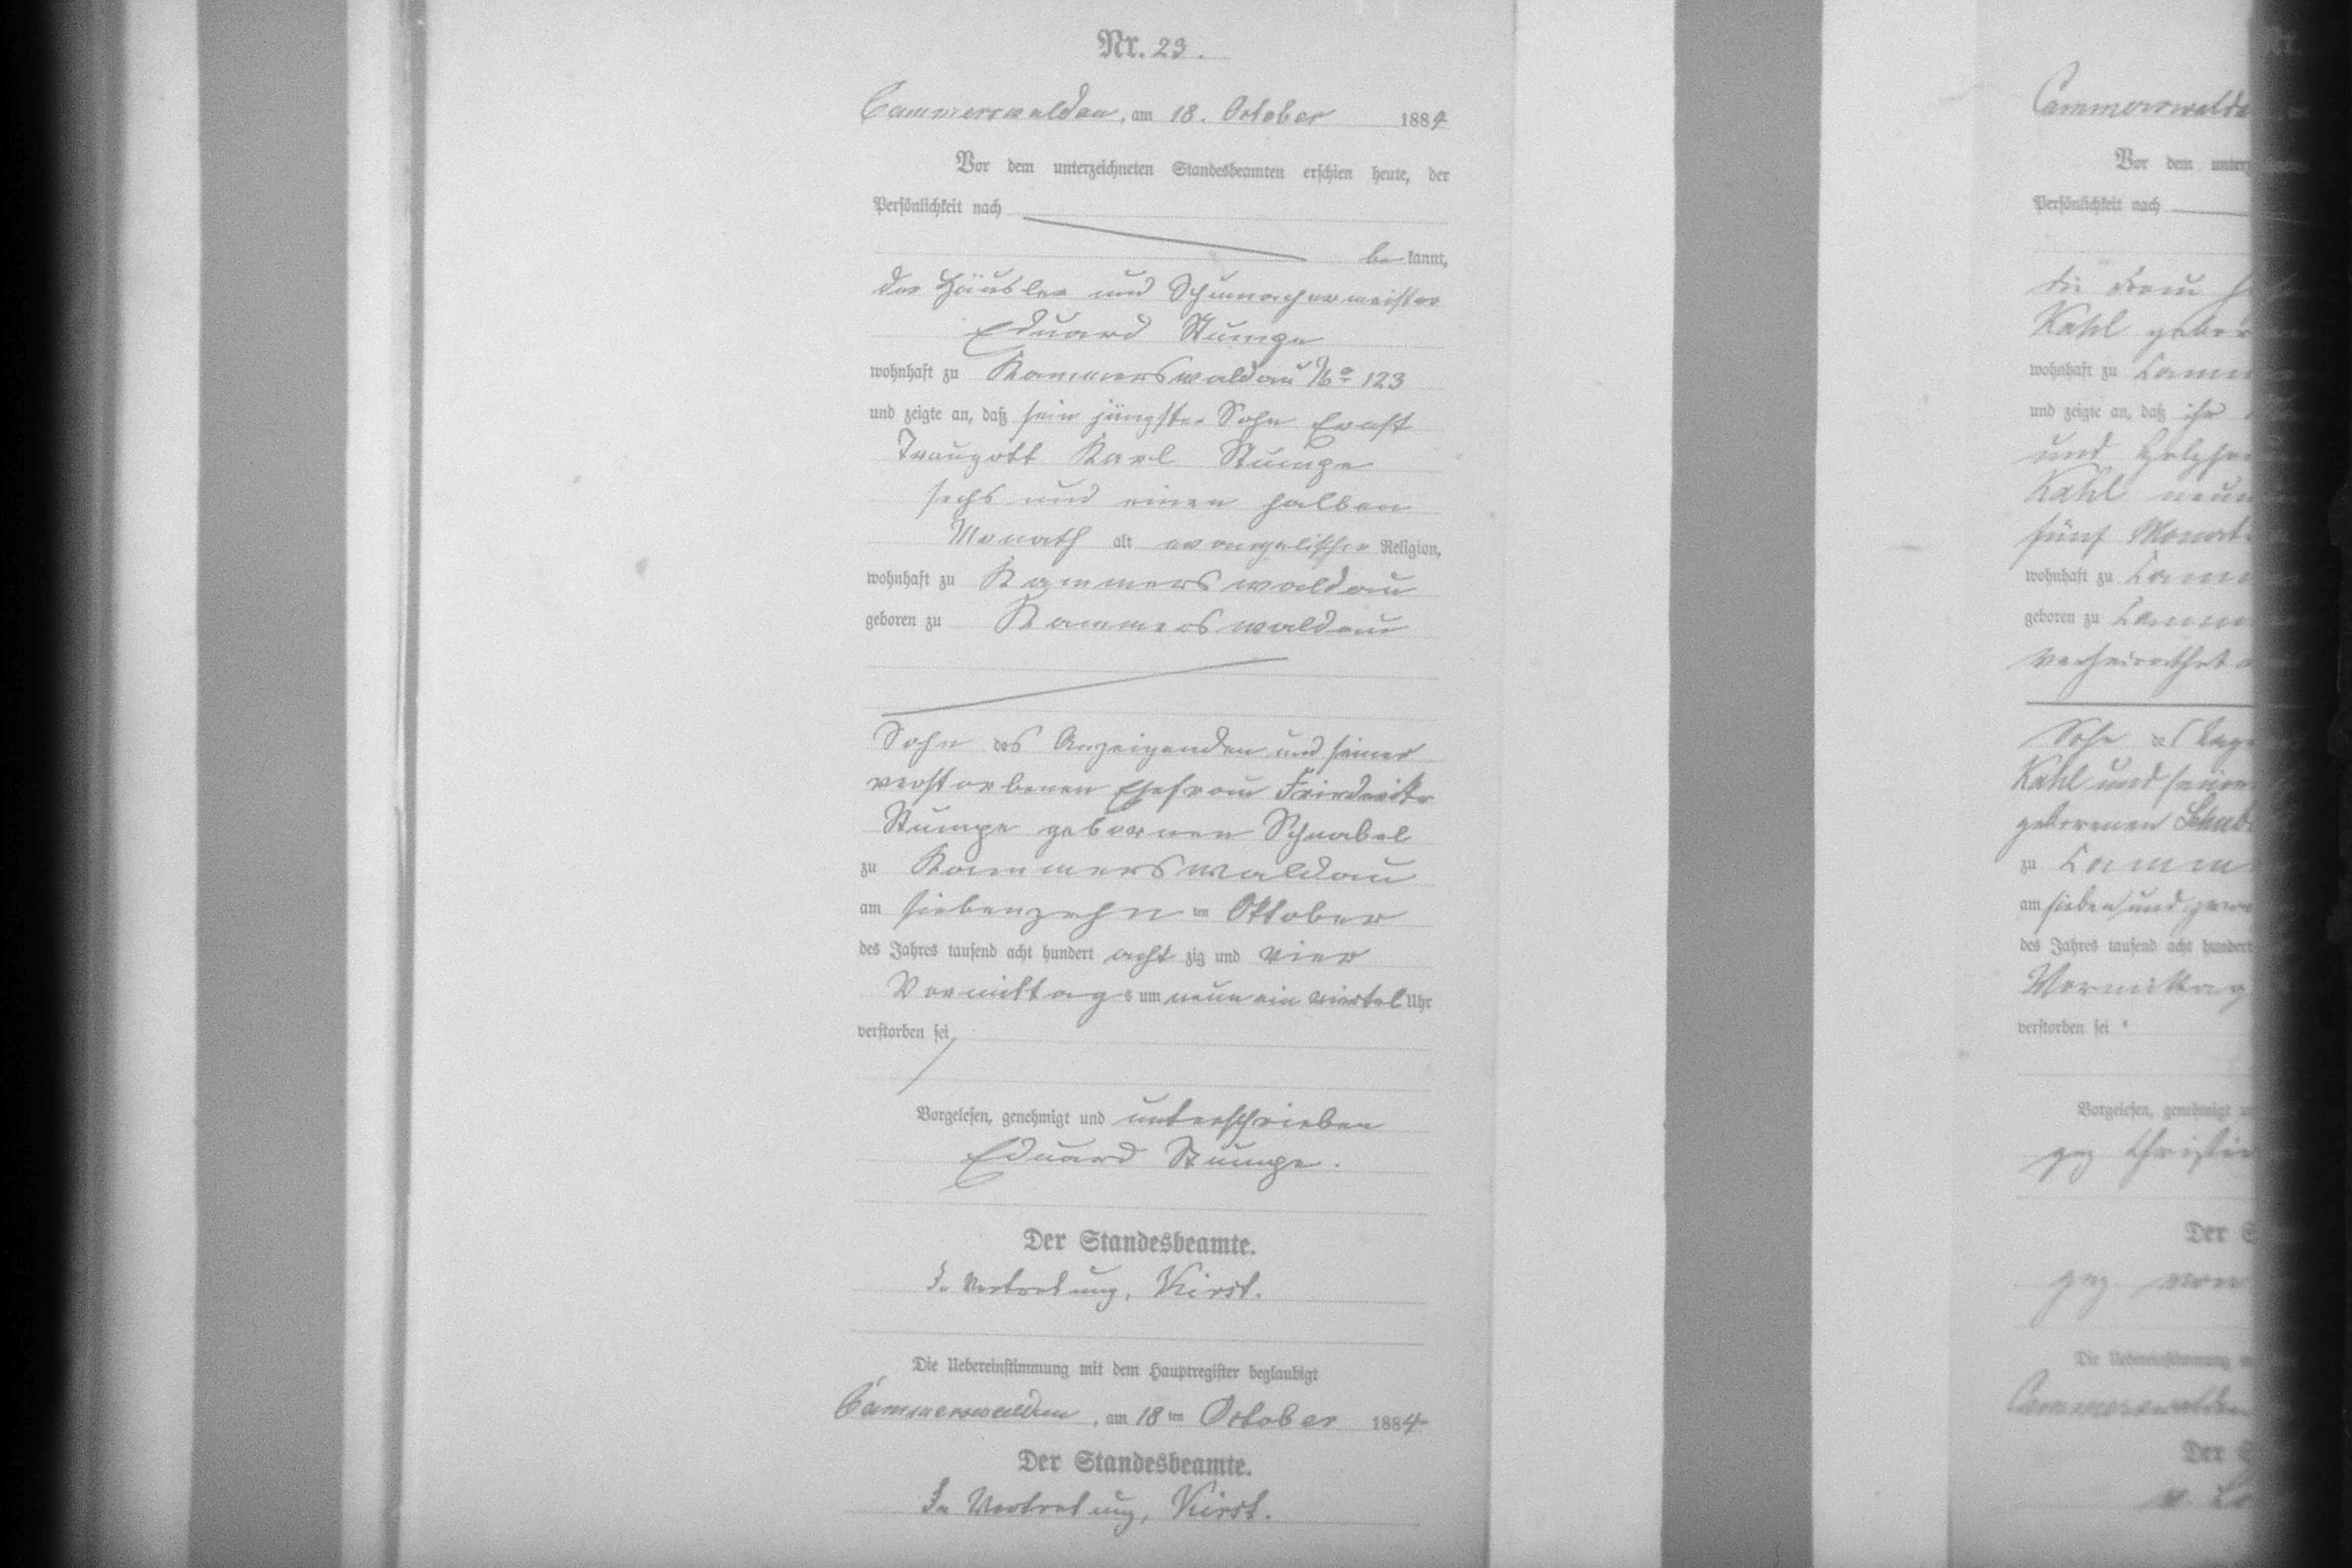 Nr. 23.
Cammerswaldau, am 18. October 1884
Vor dem unterzeichneten Standesbeamten erschien heute, der
Persönlichkeit nach
be kannt,
der Häusler und Schumachermeister
Eduard Stumpe
wohnhaft zu Kammerswaldau No 123
und zeigte an, daß sein jüngster Sohn Ernst
Traugott Karl Stumpe
sechs und einen halben
Monath alt evangelischer Religion,
wohnhaft zu Kammerswaldau
geboren zu Kammerswaldau
Sohn des Anzeigenden und seiner
verstorbenen Ehefrau Friederike
Stumpe gebornen Schnabel
zu Kammerswaldau
am siebenzehn ten Oktober
des Jahres tausend acht hundert acht zig und vier
Vormittags um neun ein viertel Uhr
verstorben sei
Vorgelesen, genehmigt und unterschrieben
Eduard Stumpe.
Der Standesbeamte.
In Vertretung, Kirst.
Die Uebereinstimmung mit dem Hauptregister beglaubigt
Cammerswaldau, am 18 ten October 1884
Der Standesbeamte.
In Vertretung, Kirst.
Cammerswalda
Vor dem unterz
Persönlichkeit nach
die Frau
Kahl gebor
wohnhaft zu Camm
und zeigte an, daß ihr
und
Kahl neun
fünf Monat
wohnhaft zu Camm
geboren zu Camm
verheirathet
Sohn des Tage
Kahl und seiner
geborenen Schub
zu Camm
am sieben und zwan
des Jahres tausend acht hundert
Vormittag
verstorben sei
Vorgelesen, genehmigt u
gez Christia
Der S
gez. von
Die Uebereinstimmung m
Cammerswaldau
Der S